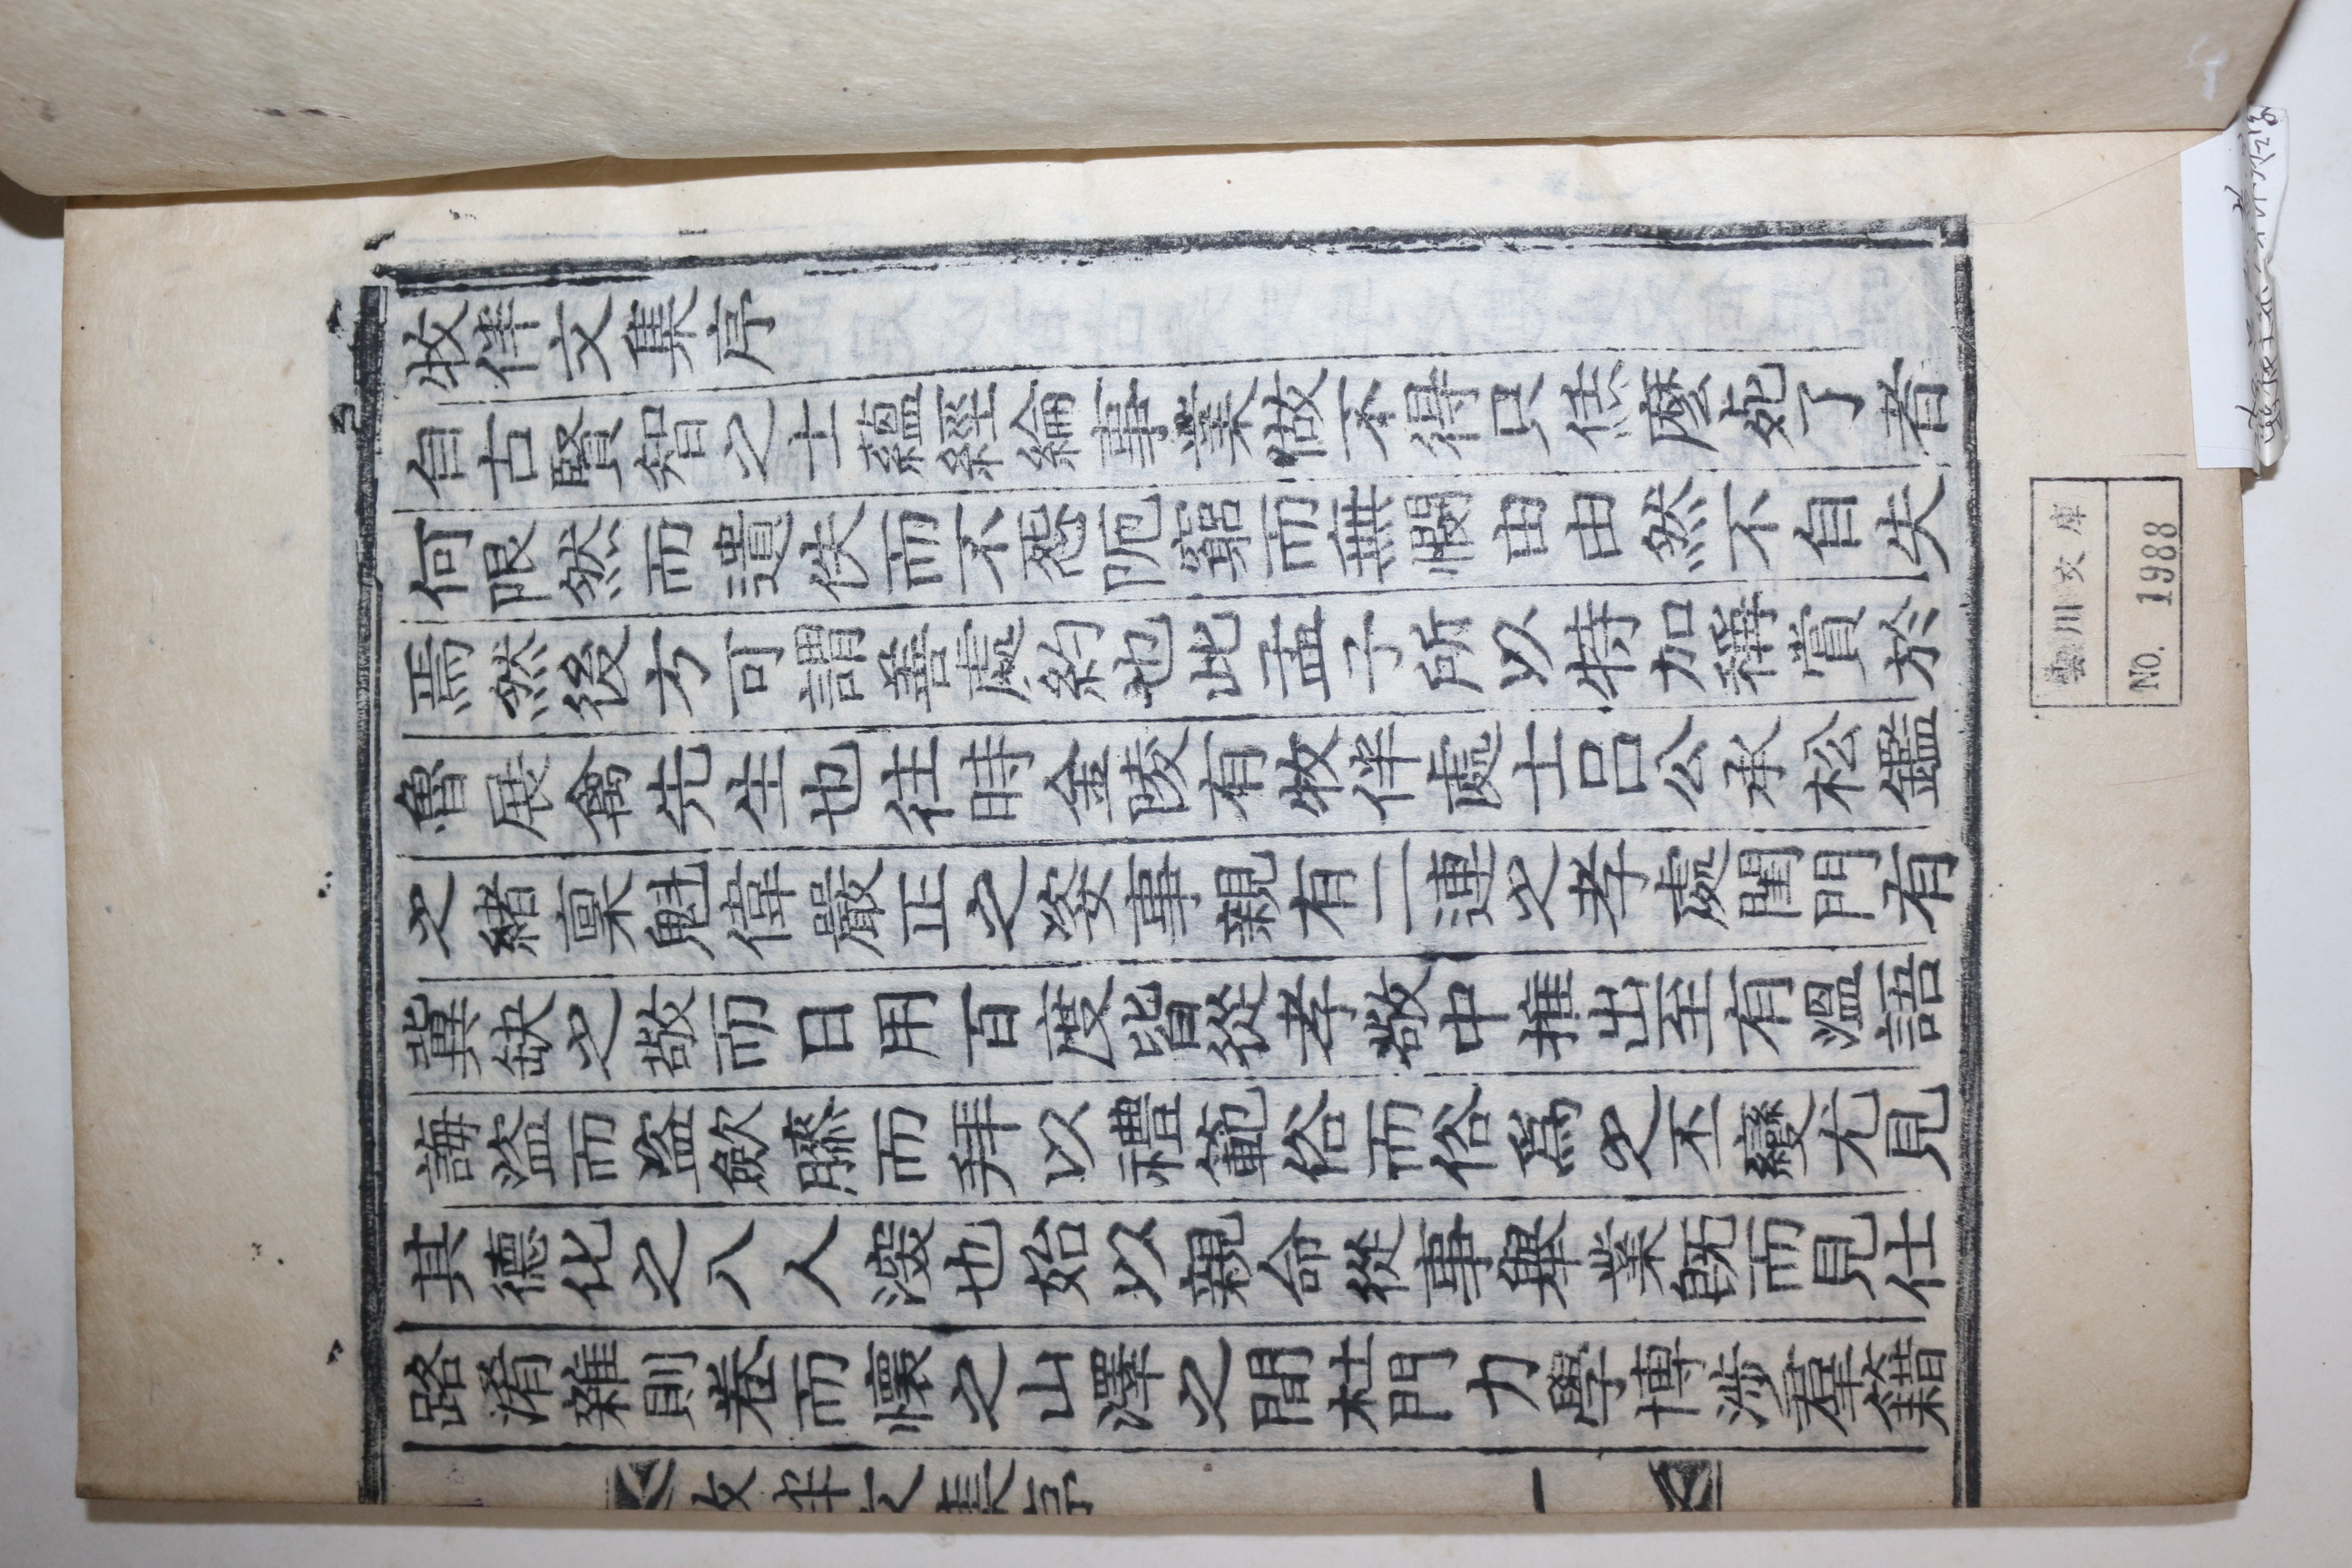 牧伴文集序
自古賢智之士蘊經綸事業做不得只恁麽死了者
何限然而遺佚而不怨阨窮而無憫由由然不自失
焉然後方可謂善處約也此孟子所以特加稱賞於
魯展禽先生也往時金陵有牧伴處士呂公承松鑑
之緖稟魁偉嚴正之姿事親有二連之孝處閨門有
冀缺之敬而日用百度皆從孝敬中推出至有溫語
誨盜而盜斂膝而拜以禮範俗而俗爲之丕變尤見
其德化之入人深也始以親命從事擧業旣而見仕
路淆雜則卷而懷之山澤之間杜門力學博涉羣籍
牧伴文集序 一
雲川文庫
No. 1988